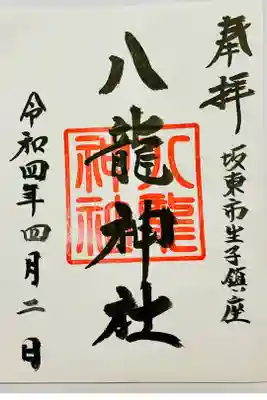 奉拝
坂東市生子鎮座
八龍神社
八龍神社
令和四年四月二日